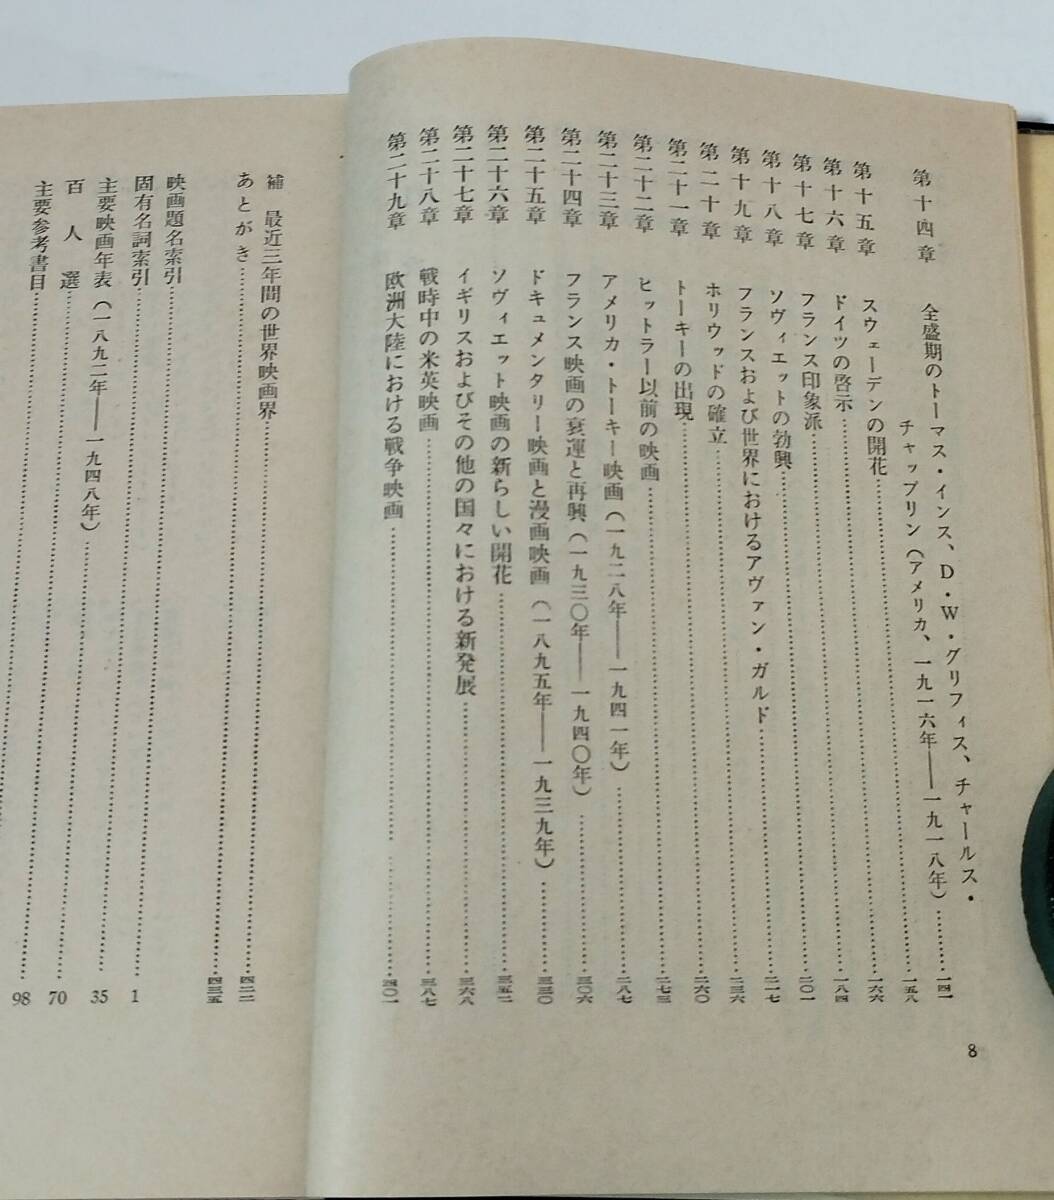 第十四章　全盛期のトーマス・インス、D・W・グリフィス、チャールス・
チャップリン（アメリカ、一九一六年――一九一八年）……一四一
第十五章　スウェーデンの開花……一五八
第十六章　ドイツの啓示……一六六
第十七章　フランス印象派……一八四
第十八章　ソヴィエットの勃興……二〇一
第十九章　フランスおよび世界におけるアヴァン・ガルド……二一七
第二十章　ホリウッドの確立……二三六
第二十一章　トーキーの出現……二六〇
第二十二章　ヒットラー以前の映画……二七三
第二十三章　アメリカ・トーキー映画（一九二八年――一九四一年）……二八七
第二十四章　フランス映画の衰運と再興（一九三〇年――一九四〇年）……三〇六
第二十五章　ドキュメンタリー映画と漫画映画（一八九五年――一九三九年）……三三〇
第二十六章　ソヴィエット映画の新らしい開花……三五二
第二十七章　イギリスおよびその他の国々における新発展……三六八
第二十八章　戦時中の米英映画……三八七
第二十九章　欧洲大陸における戦争映画……四〇一
8
補　最近三年間の世界映画界……四二二
あとがき……四三五
映画題名索引……1
固有名詞索引……35
主要映画年表（一八九二年――一九四八年）……70
百人選……98
主要参考書目……